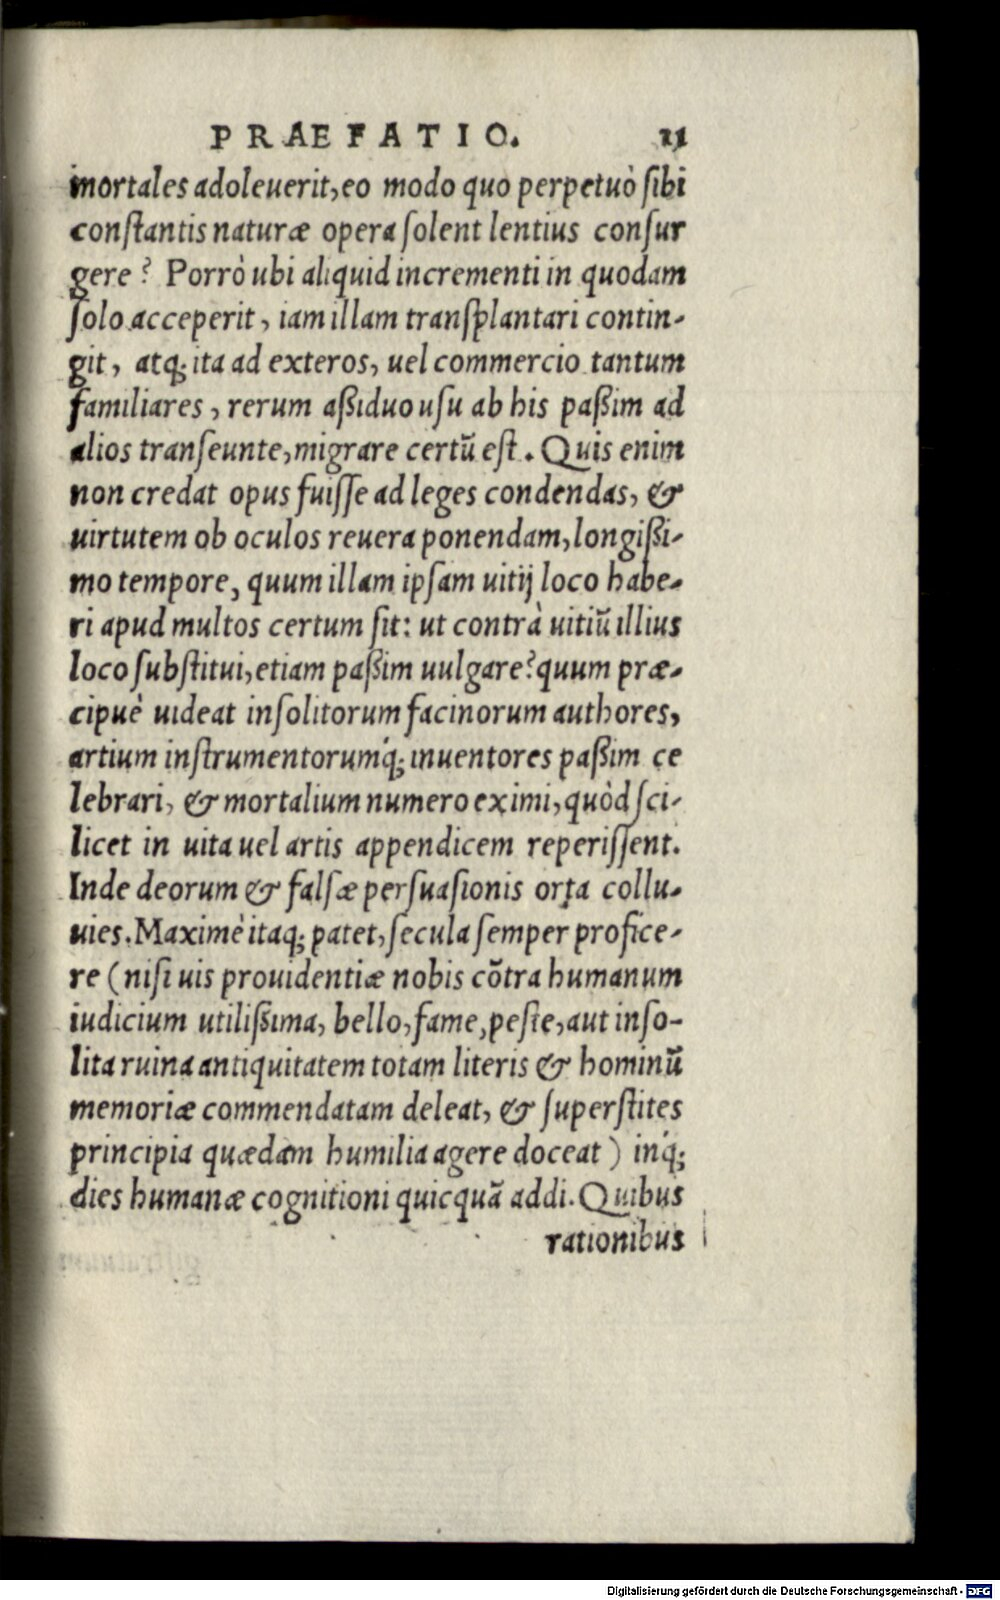 PRAEFATIO. 21
mortales adoleuerit, eo modo quo perpetuò sibi
constantis naturæ opera solent lentius consur
gere? Porrò ubi aliquid incrementi in quodam
solo acceperit, iam illam transplantari contin-
git, atq; ita ad exteros, uel commercio tantum
familiares, rerum aßiduo usu ab his paßim ad
alios transeunte, migrare certũ est. Quis enim
non credat opus fuisse ad leges condendas, &
uirtutem ob oculos reuera ponendam, longißi-
mo tempore, quum illam ipsam uitij loco habe-
ri apud multos certum sit: ut contrà uitiũ illius
loco substitui, etiam paßim uulgare? quum præ-
cipuè uideat insolitorum facinorum authores,
artium instrumentorumq́; inuentores paßim ce
lebrari, & mortalium numero eximi, quòd sci-
licet in uita uel artis appendicem reperissent.
Inde deorum & falsæ persuasionis orta collu-
uies. Maximè itaq; patet, secula semper profice-
re (nisi uis prouidentiæ nobis cõtra humanum
iudicium utilißima, bello, fame, peste, aut inso-
lita ruina antiquitatem totam literis & hominũ
memoriæ commendatam deleat, & superstites
principia quædam humilia agere doceat) inq́;
dies humanæ cognitioni quicquã addi. Quibus
rationibus
Digitalisierung gefördert durch die Deutsche Forschungsgemeinschaft - DFG